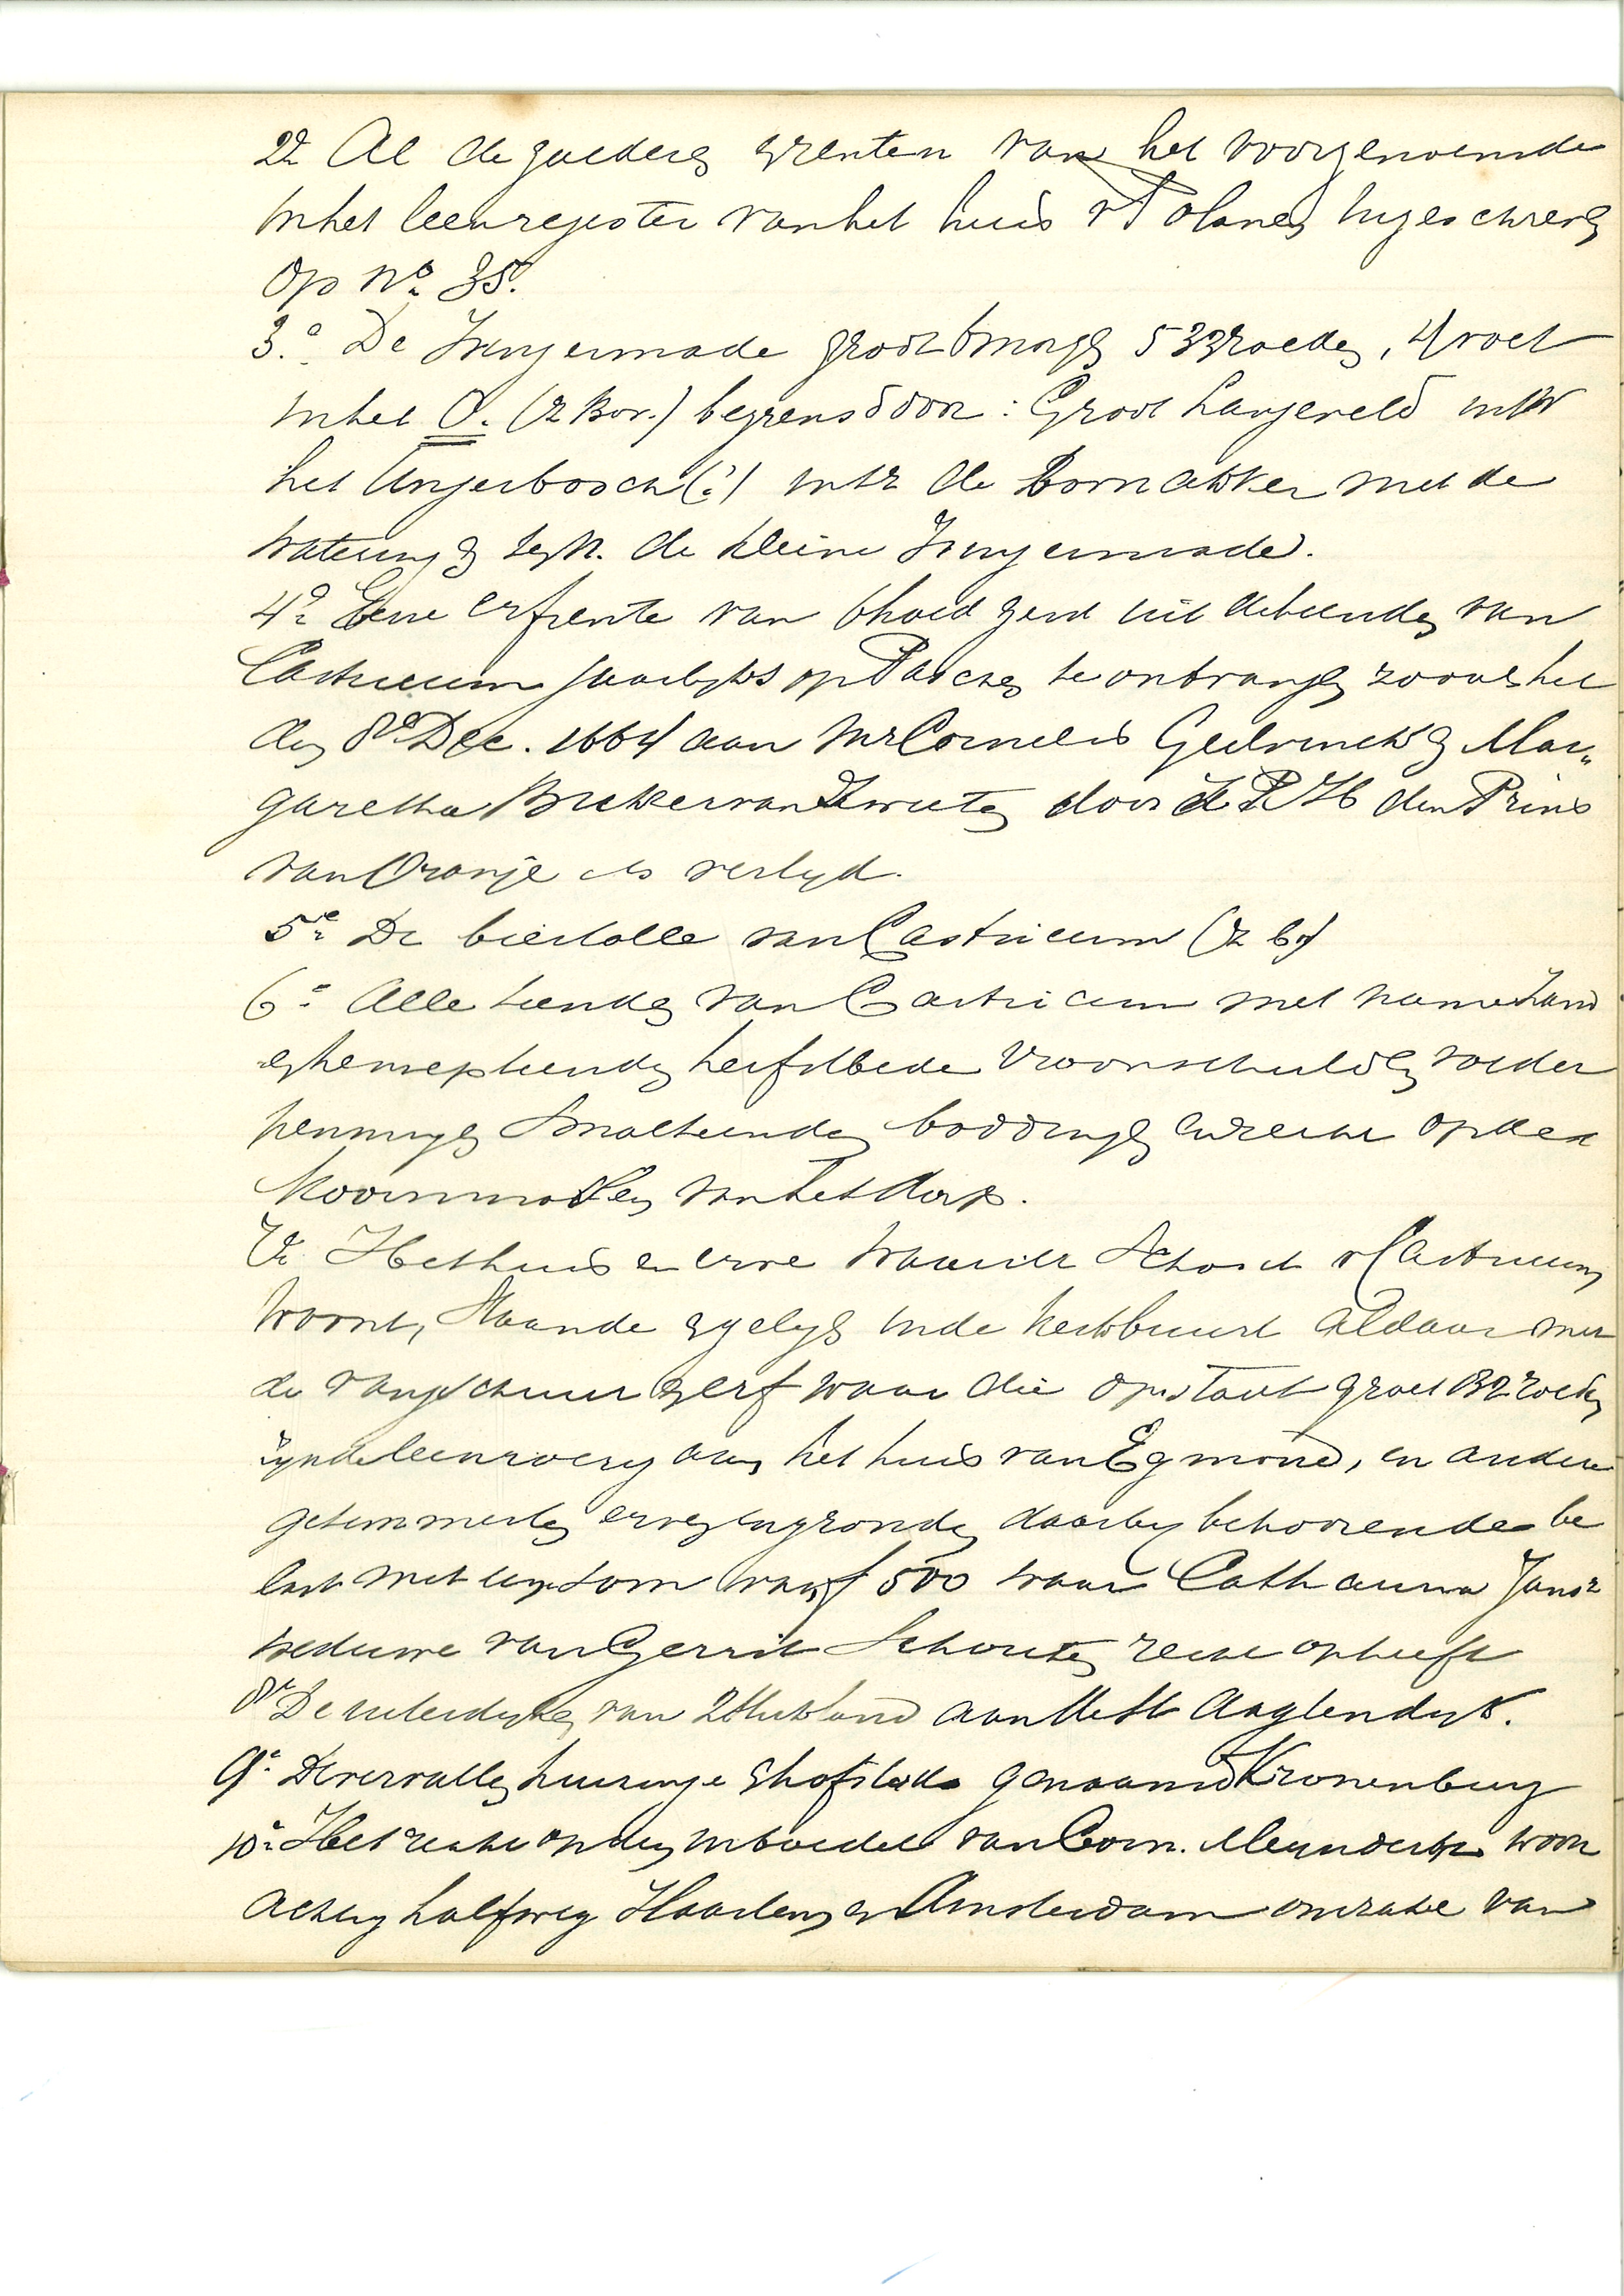 2e Al de goederen & renten van het voorgenoemde
in het leenregister van het huis v Polanen ingeschreven
op No 35.
3e De Jungermade groot 6 morgen 533 roeden, 4 voet
in het O. (z Bov.) begrensd door: Groot Langeveld in W
het Ungerbosch (?) in t Z de Bornakker met de
watering & te N. de kleine Jungermade.
4e Eene erfrente van 6 hoed gerst uit de tienden van
Castricum jaarlijks op Paschen te ontvangen zooals het
den 8e Dec. 1664 aan Mr Cornelis Geelvinck & Mar„
garetha Bicker van Swieten door Z H den Prins
van Oranje is verlijd.
5e De biertolle van Castricum (z b)
6e Alle tienden van Castricum met name Zand
& henneptienden herfstbede Vroonschulden voeder
penningen Smaltienden boddingen & recht op den
Koornmolen van het dorp.
7e Het huis en erve waarin de Schout v Castricum
woont, staande & gelegen in de kerkbuurt aldaar met
de schuur & erf waar die op staat groot roeden
zijnde leenroerig aan het huis van Egmond, en andere
getimmerten erven en gronden daarbij behoorende be
last met een som van f 500 waar Catharina Jansz
weduwe van Gerrit Schouten recht op heeft
8e De uiterdijken van 2 stuk land aan St Aagtendijk.
9e De vervallen huizinge & hofstede genaamd Kronenburg
10e Het recht op den inboedel van Corn. Meyndertsz woon
achtig halfweg Haarlem en Amsterdam onzake van